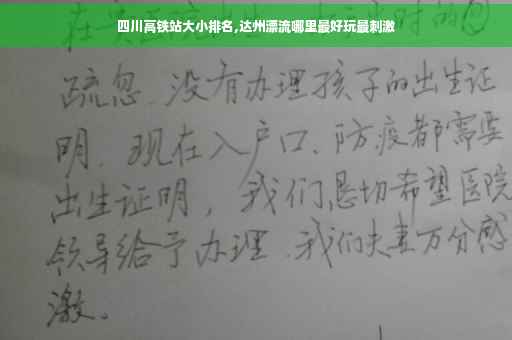 四川高铁站大小排名,达州漂流哪里最好玩最刺激
疏忽.没有办理孩子的出生证
明.现在入户口、防疫都需要
出生证明，我们恳切希望医院
领导给予办理.我们夫妻万分感
激。